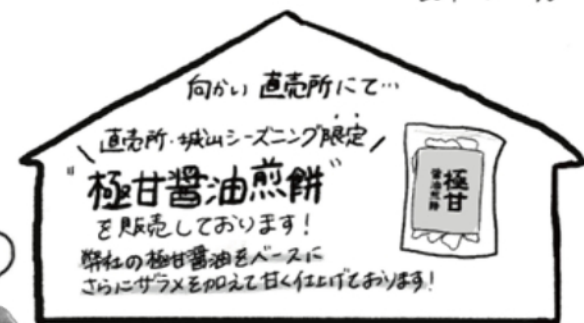 向かい 直売所にて…
直売所・城山シーズニング限定
"極甘醤油煎餅"
を販売しております!
弊社の極甘醤油をベースに
さらにザラメを加えて甘く仕上げております!
極甘
醤油煎餅